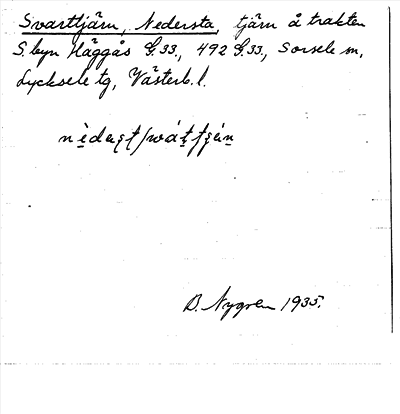 Svarttjärn, Nedersta, tjärn å trakten
S. byn Häggås G.33., 492 G.33, Sorsele sn,
Lycksele tg, Västerb. l.
B. Nygren 1935.